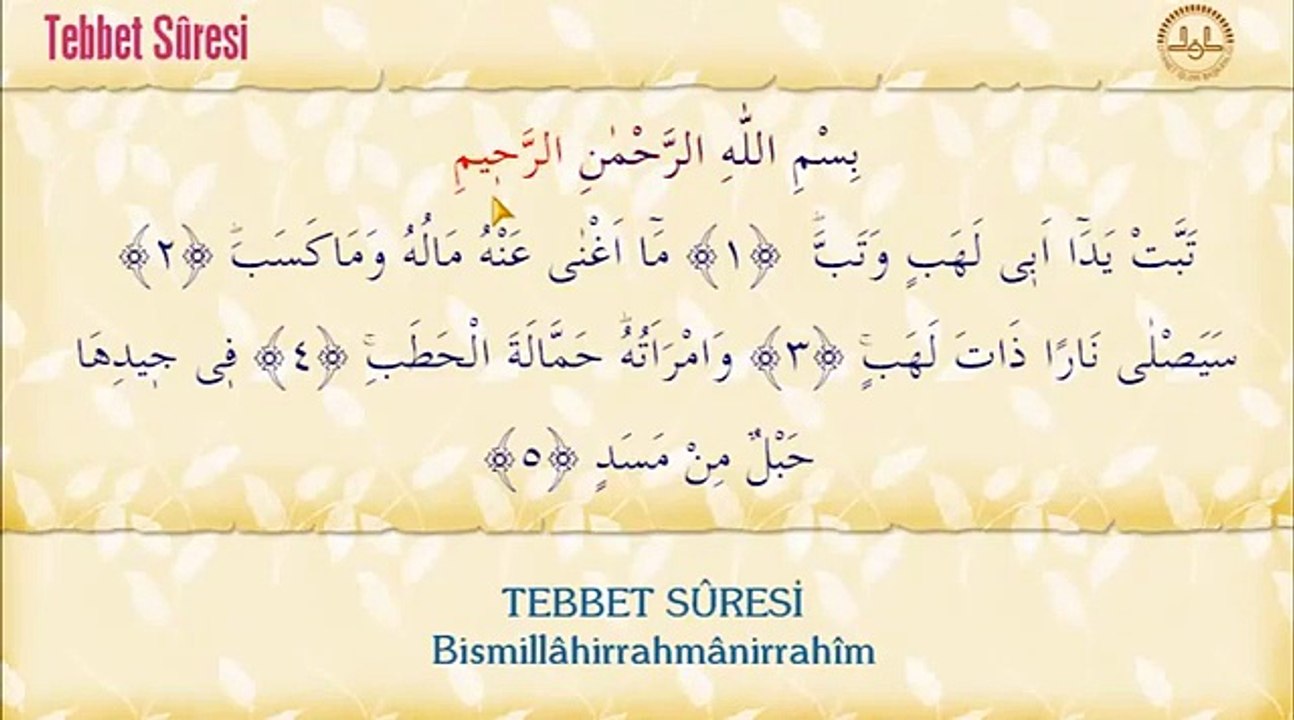 Tebbet Sûresi
بِسْمِ اللّٰهِ الرَّحْمٰنِ الرَّحٖيمِ
تَبَّتْ يَدَٓا اَبٖى لَهَبٍ وَتَبَّۜ ﴿١﴾ مَٓا اَغْنٰى عَنْهُ مَالُهُ وَمَاكَسَبَۜ ﴿٢﴾
سَيَصْلٰى نَارًا ذَاتَ لَهَبٍۚ ﴿٣﴾ وَامْرَاَتُهُۜ حَمَّالَةَ الْحَطَبِۚ ﴿٤﴾ فٖى جٖيدِهَا
حَبْلٌ مِنْ مَسَدٍ ﴿٥﴾
TEBBET SÛRESİ
Bismillâhirrahmânirrahîm